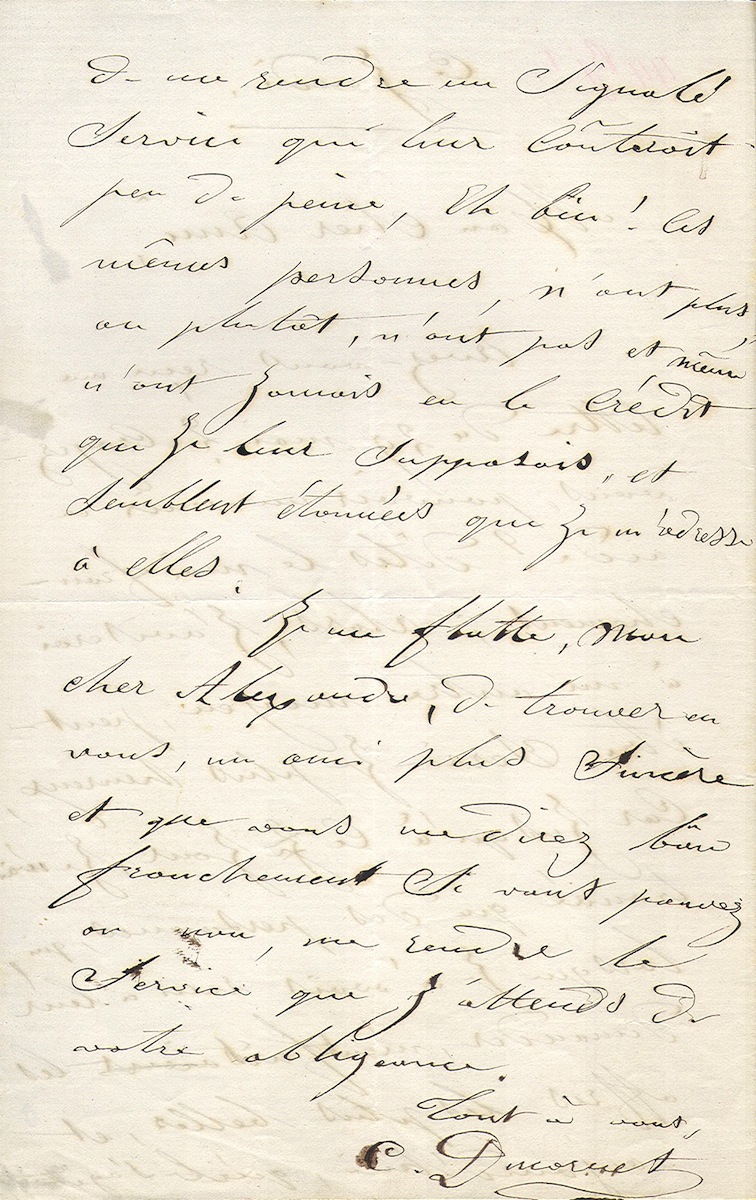 de me rendre un Signalé
Service qui leur coûteroit
peu de peine, Eh bien! Ces
mêmes personnes, n'ont plus,
ou plutôt, n'ont pas et même
n'ont jamais eu le Crédit
que je leur Supposois, et
Semblent étonnées que je m'adresse
à elles.
Je me flatte, mon
cher Alexandre, de trouver en
vous, un ami plus Sincère
et que vous me direz bien
franchement Si vous pouvez
ou non, me rendre le
Service que j'attends de
votre obligeance.
Tout à vous,
C. Ducornet